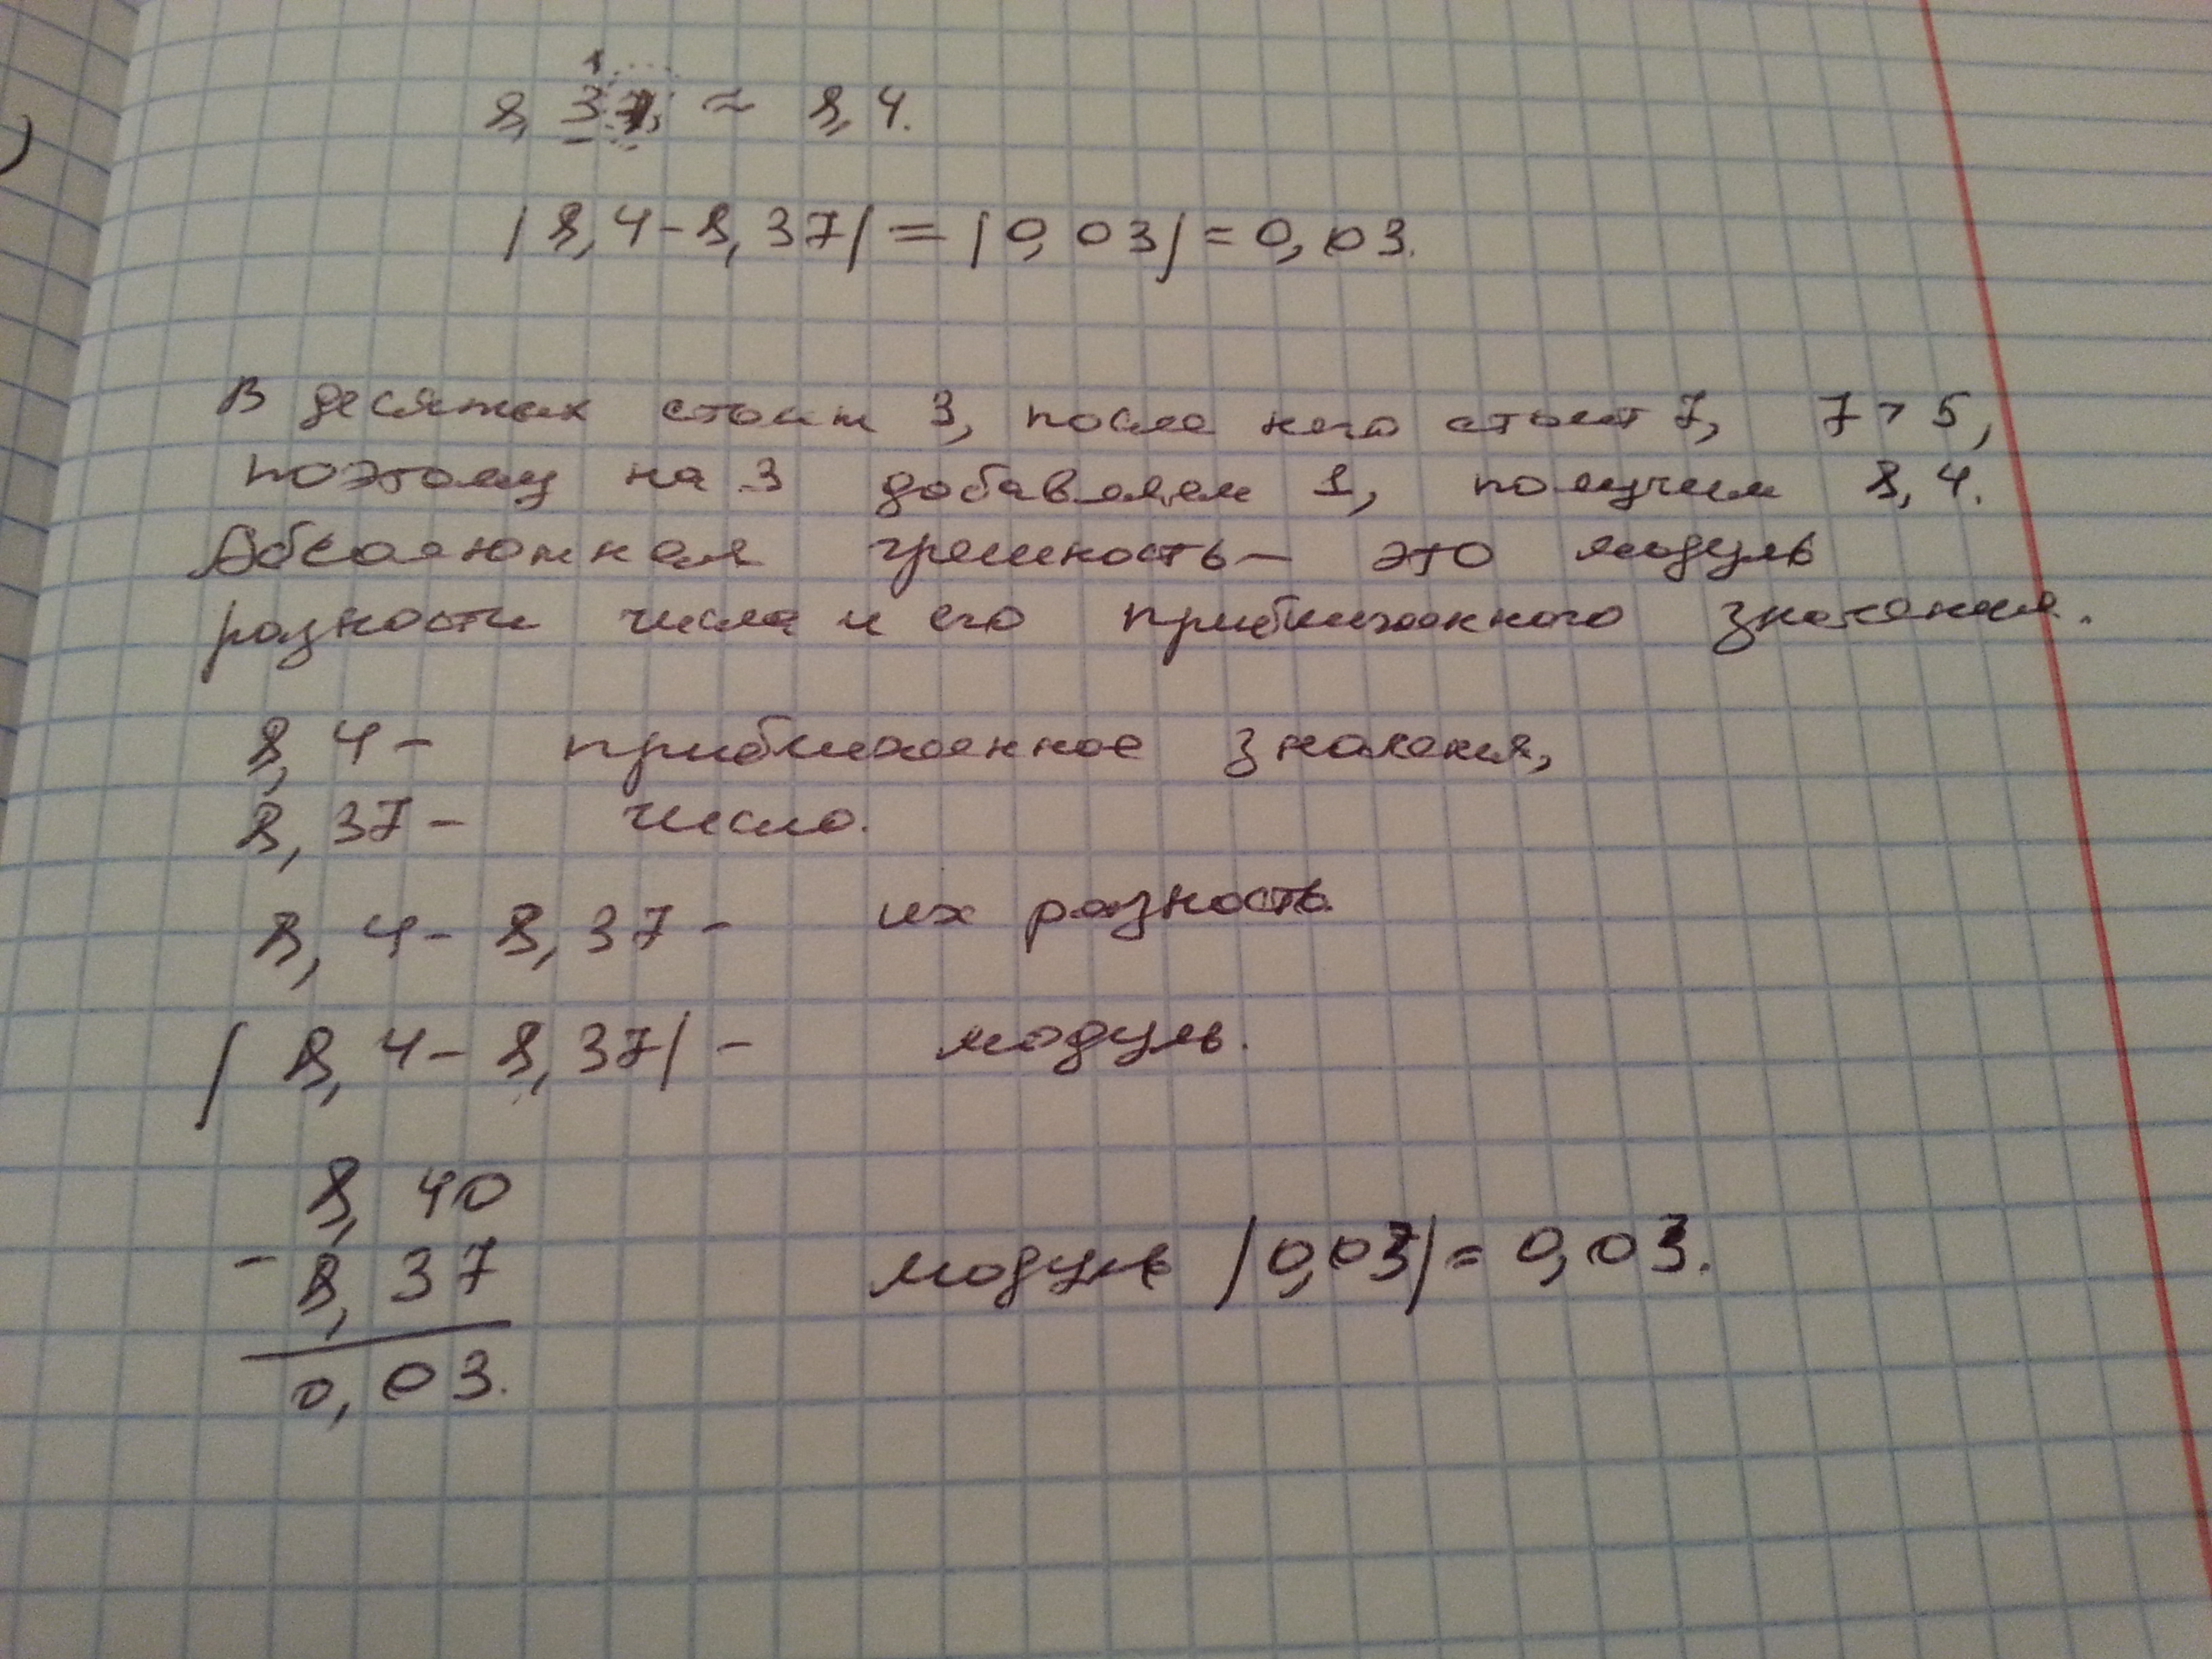 1
8,37 ≈ 8,4.
|8,4-8,37| = |0,03| = 0,03.
В десятых стоит 3, после него стоит 7, 7 > 5,
поэтому на 3 добавляем 1, получим 8,4.
Абсолютная грешность - это модуль
разности числа и его приближенного значения.
8,4 - приближенное значения,
8,37 - число.
8,4 - 8,37 - их разность
|8,4 - 8,37| - модуль.
8,40
- 8,37
0,03.
модуль |0,03| = 0,03.